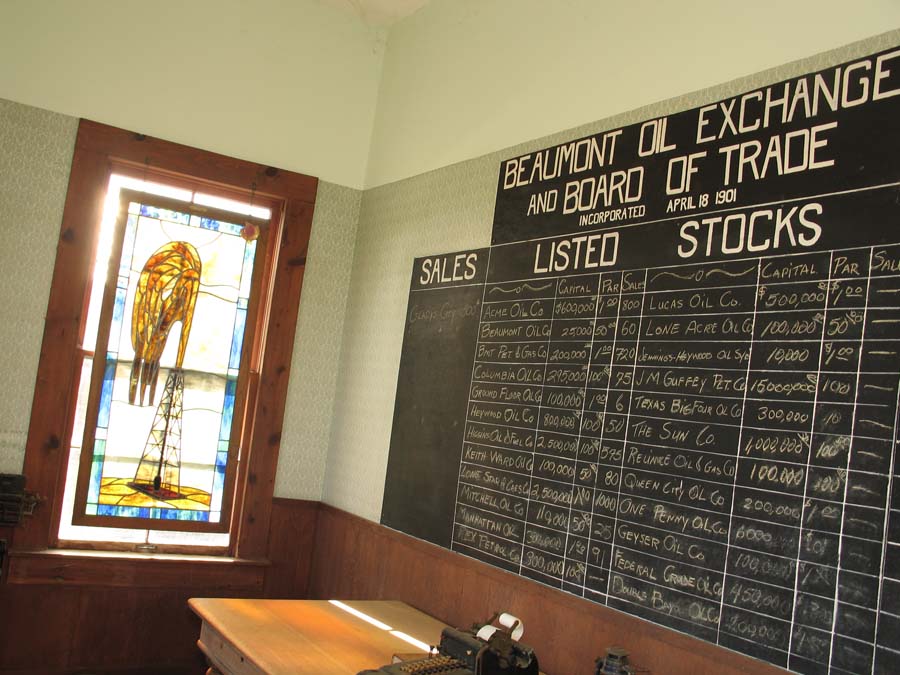 BEAUMONT OIL EXCHANGE
AND BOARD OF TRADE
INCORPORATED APRIL 18 1901
SALES LISTED STOCKS
CAPITAL PAR SALES CAPITAL PAR
ACME OIL CO $600,000 1.00 800 LUCAS OIL CO. $500,000 $1.00
BEAUMONT OIL CO 25000 50 60 LONE ACRE OIL CO 100,000 50
BMT PET & GAS CO 200,000 1.00 720 JENNINGS-HEYWOOD OIL 10,000 $1.00
COLUMBIA OIL CO 295,000 100 75 J M GUFFEY PET CO 15000000 100
GROUND FLOOR OIL CO 100,000 1.00 6 TEXAS BIG FOUR OIL CO 300,000 10
HEYWOOD OIL CO 800,000 100 50 THE SUN CO. 1,000,000
HIGGINS OIL & FUEL CO 2,500,000 100 575 RELIANCE OIL & GAS CO 100,000 100
KEITH WARD OIL 100,000 50 80 QUEEN CITY OIL CO 200,000 $1.00
2,500,000 1000 ONE PENNY OIL CO 6000
MITCHELL OIL CO 110,000 50 25 GEYSER OIL CO 100,000
MANHATTAN OIL 300,000 9 FEDERAL CRUDE OIL CO 450,000
PETROL CO 300,000 100 DOUBLE BAYOU OIL CO